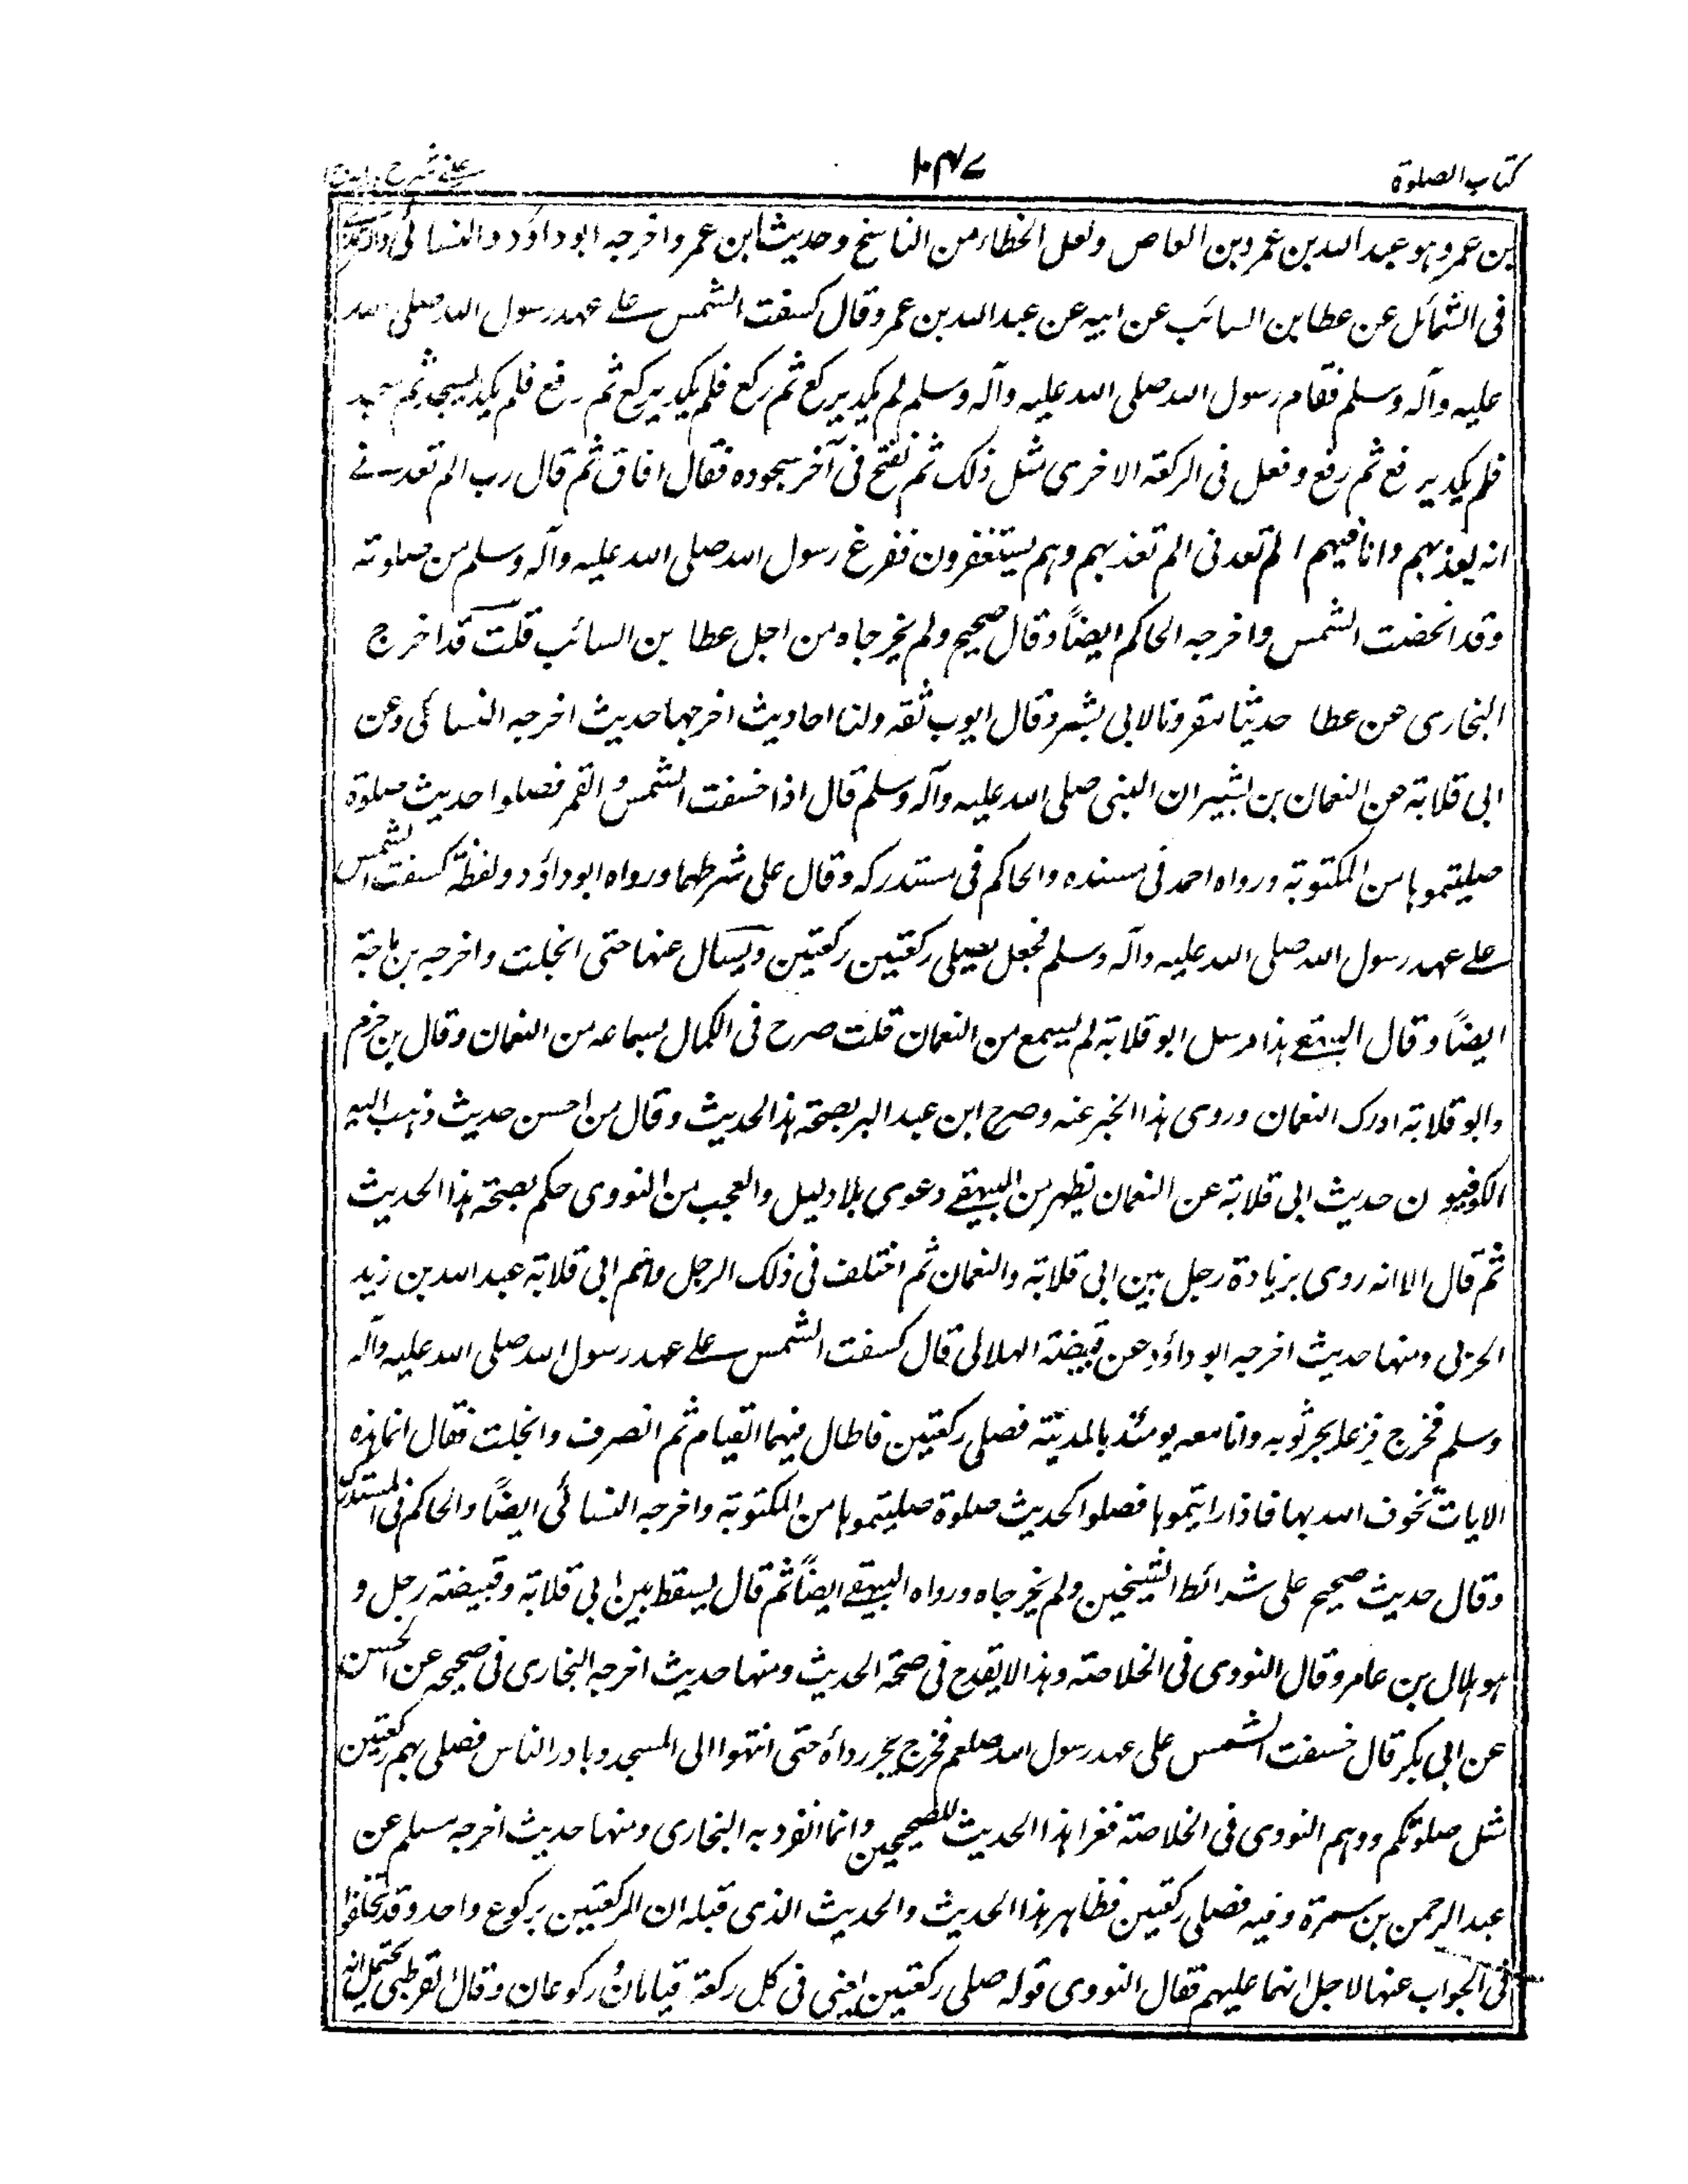 كتاب الصلوة
١٠٤٧
بن عمرو هو عبد الله بن عمرو بن العاص ولعل الخطاء من الناسخ وحديث ابن عمر واخرجه ابو داؤد والنسائى
فى الشمائل عن عطا بن السائب عن ابيه عن عبد الله بن عمر وقال كسفت الشمس على عهد رسول الله صلى الله
عليه وآله وسلم فقام رسول الله صلى الله عليه وآله وسلم لم يكد يركع ثم ركع فلم يكد يركع ثم رفع فلم يكد يسجد ثم سجد
فلم يكد يرفع ثم رفع وفعل فى الركعة الاخرى مثل ذلك ثم نفتح فى آخر سجوده فقال افاق ثم قال رب الم تعدنى
انه يعذبهم وانا فيهم الم تعدنى الم تعذبهم وهم يستغفرون ففرغ رسول الله صلى الله عليه وآله وسلم من صلوته
وقد انحضت الشمس واخرجه الحاكم ايضاً وقال صحيح ولم يخرجاه من اجل عطا بن السائب قلت قد اخرج
البخارى عن عطا حديثا مقرونا لابى بشر وقال ايوب ثقه ولنا احاديث اخرجها حديث اخرجه النسائى وعن
ابى قلابة عن النعمان بن بشير ان النبى صلى الله عليه وآله وسلم قال اذا خسفت الشمس والقمر فصلوا حديث صلوة
صليتموها من المكتوبة ورواه احمد فى مسنده والحاكم فى مستدركه وقال على شرطهما ورواه ابو داؤد ولفظه كسفت الشمس
على عهد رسول الله صلى الله عليه وآله وسلم فجعل يصلى ركعتين ركعتين ويسال عنها حتى انجلت واخرجه بن ماجة
ايضاً وقال البيهقى هذا مرسل ابو قلابة لم يسمع من النعمان قلت صرح فى الكمال بسماعه من النعمان وقال بن حزم
وابو قلابة ادرك النعمان وروى هذا الخبر عنه وصرح ابن عبد البر بصحة هذا الحديث وقال من احسن حديث ذهب اليه
الكوفيون حديث ابى قلابة عن النعمان يظهر من البيهقى دعوى بلا دليل والعجب من النووى حكم بصحة هذا الحديث
ثم قال الا انه روى بزيادة رجل بين ابى قلابة والنعمان ثم اختلف فى ذلك الرجل واسم ابى قلابة عبد الله بن زيد
الحربى ومنها حديث اخرجه ابو داؤد عن قبيضة الهلالى قال كسفت الشمس على عهد رسول الله صلى الله عليه وآله
وسلم فخرج فزعا يجر ثوبه وانا معه يومئذ بالمدينة فصلى ركعتين فاطال فيهما القيام ثم انصرف وانجلت فقال انما هذه
الايات تخوف الله بها فاذا رايتموها فصلوا كحديث صلوة صليتموها من المكتوبة واخرجه النسائى ايضاً والحاكم فى المستدرك
وقال حديث صحيح على شرائط الشيخين ولم يخرجاه ورواه البيهقى ايضاً ثم قال يسقط بين ابى قلابة وقبيضة رجل و
هو هلال بن عامر وقال النووى فى الخلاصة وهذا لا يقدح فى صحة الحديث ومنها حديث اخرجه البخارى فى صحيحه عن الحسن
عن ابى بكر قال خسفت الشمس على عهد رسول الله صلعم فخرج يجر رداءه حتى انتهوا الى المسجد وبادر الناس فصلى بهم ركعتين
مثل صلوتكم ووهم النووى فى الخلاصة فعزا هذا الحديث للصحيحين وانما انفرد به البخارى ومنها حديث اخرجه مسلم عن
عبد الرحمن بن سمرة وفيه فصلى ركعتين فظاهر هذا الحديث والحديث الذى قبله ان الركعتين بركوع واحد وقد تكلفوا
فى الجواب عنها لاجل انهما عليهم فقال النووى قوله صلى ركعتين يعنى فى كل ركعة قيامان و ركوعان وقال القرطبى يحتمل انه